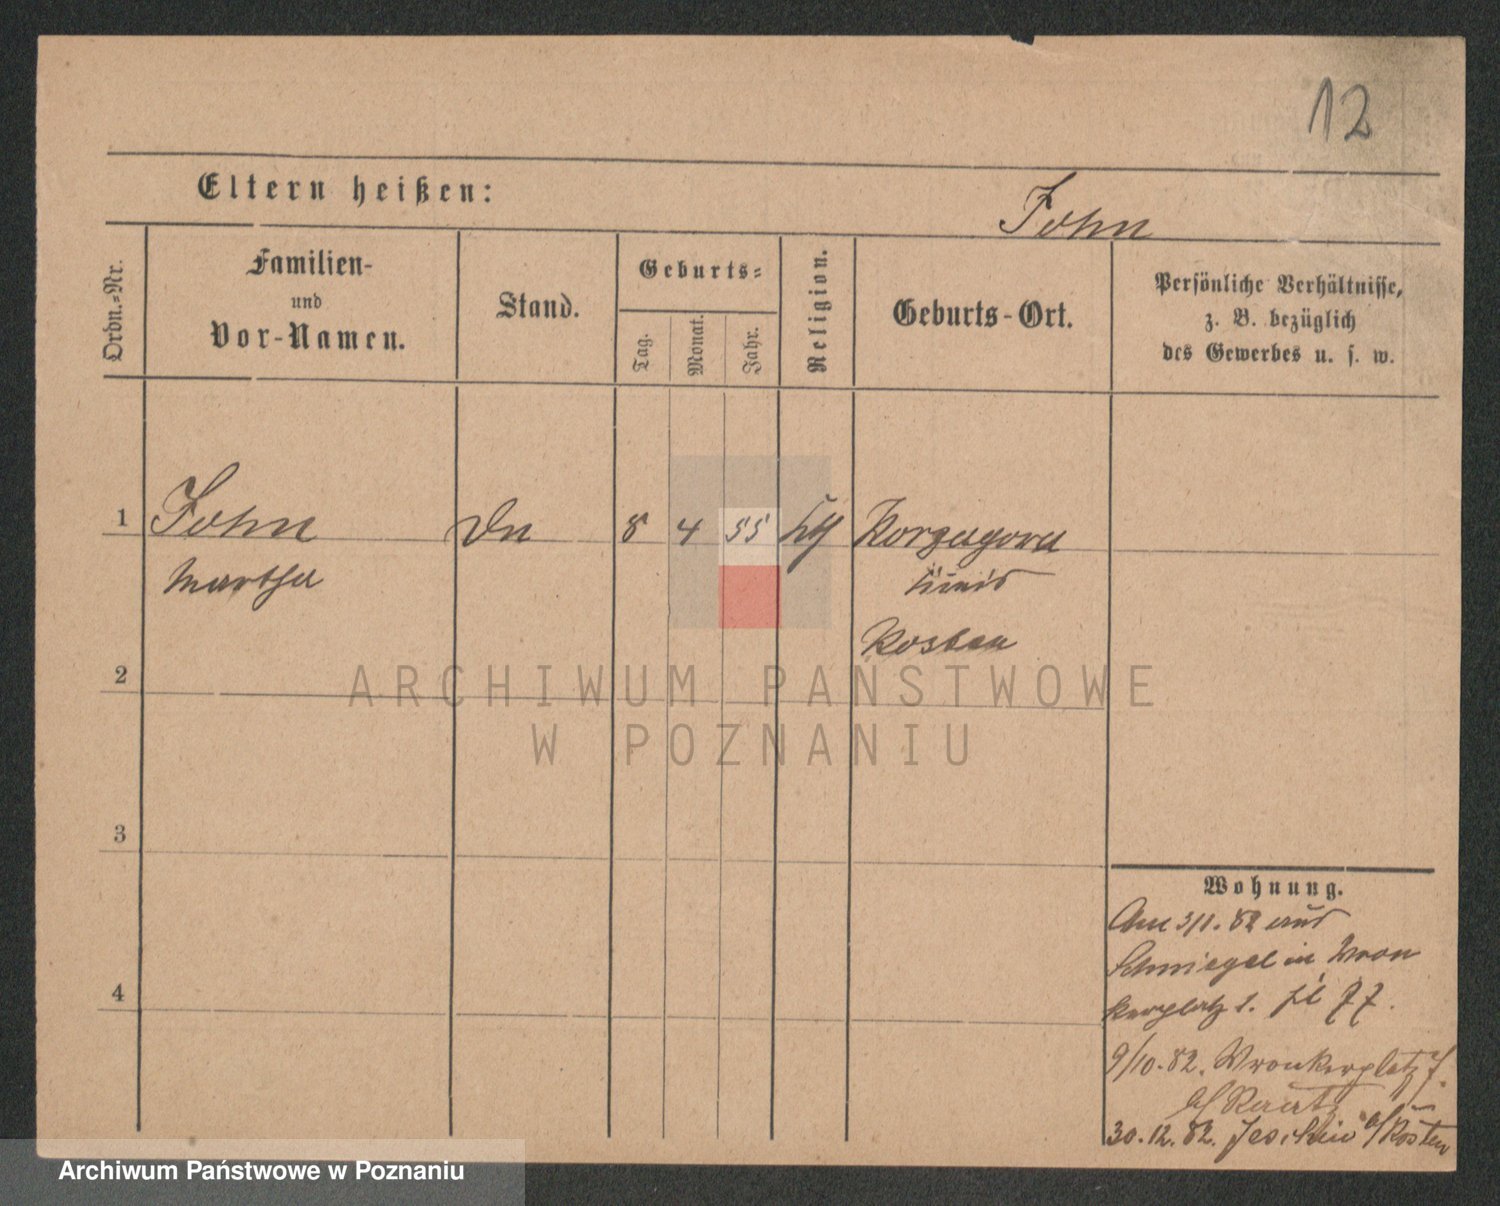 12
Eltern heißen:
John
Ordn.-Nr.
Familien-
und
Vor-Namen.
Stand.
Geburts-
Tag.
Monat.
Jahr.
Religion.
Geburts-Ort.
Persönliche Verhältnisse,
z. B. bezüglich
des Gewerbes u. s. w.
1
John
8
4
55
Martha
Kosten
2
ARCHIWUM PAŃSTWOWE
W POZNANIU
3
Wohnung.
Am 3/1. 82 aus
Schmiegel in Wron
kerplatz 1.
4
9/10. 82. Wronkerplatz 7.
30. 12. 82. Kosten
Archiwum Państwowe w Poznaniu